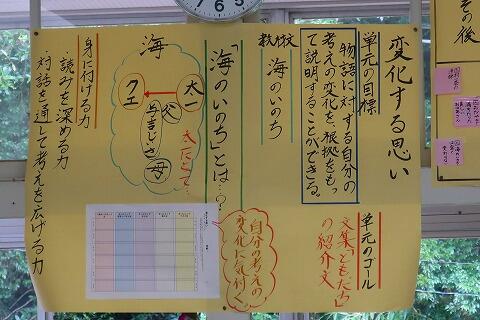 変化する思い
単元の目標
物語に対する自分の
考えの変化を、根拠をもっ
て説明することができる。
単元のゴール
文集「ともだち」
の紹介文
教材文
海のいのち
「海のいのち」とは…?
自分の考えの
変化に気付く。
海
太一
クエ
父
与吉じいさ
母
太一にとって…
身に付ける力
・読みを深める力
・対話を通して考えを広げる力
その後